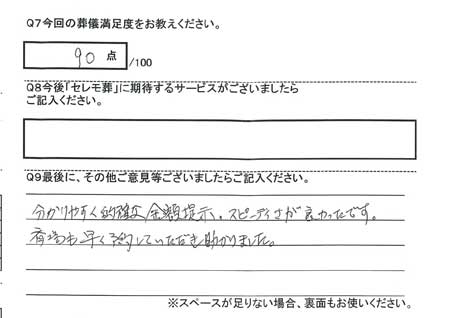 Q7今回の葬儀満足度をお教えください。
90 点 /100
Q8今後「セレモ葬」に期待するサービスがございましたら
ご記入ください。
Q9最後に、その他ご意見等ございましたらご記入ください。
分かりやすく的確な金額提示、スピーディさが良かったです。
斎場も早く予約していただき助かりました。
※スペースが足りない場合、裏面もお使いください。